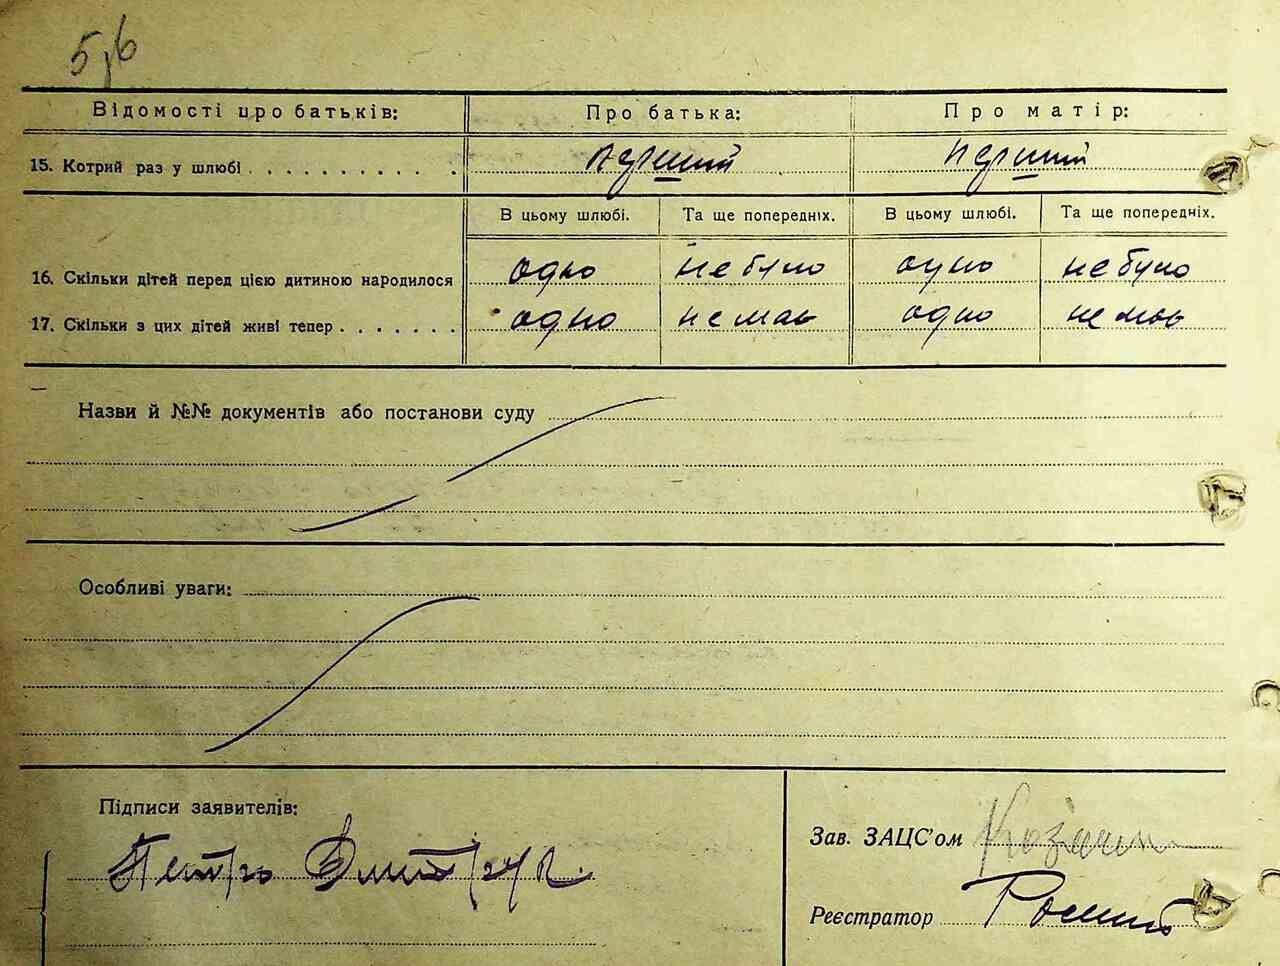 5,6
Відомості про батьків: Про батька: Про матір:
15. Котрий раз у шлюбі . . . . . . . . . . . перший перший
В цьому шлюбі. Та ще попередніх. В цьому шлюбі. Та ще попередніх.
16. Скільки дітей перед цією дитиною народилося одно не було одно не було
17. Скільки з цих дітей живі тепер . . . . . . . одно немає одно немає
Назви й №№ документів або постанови суду
Особливі уваги:
Підписи заявителів:
Зав. ЗАЦС'ом
Петро
Реєстратор